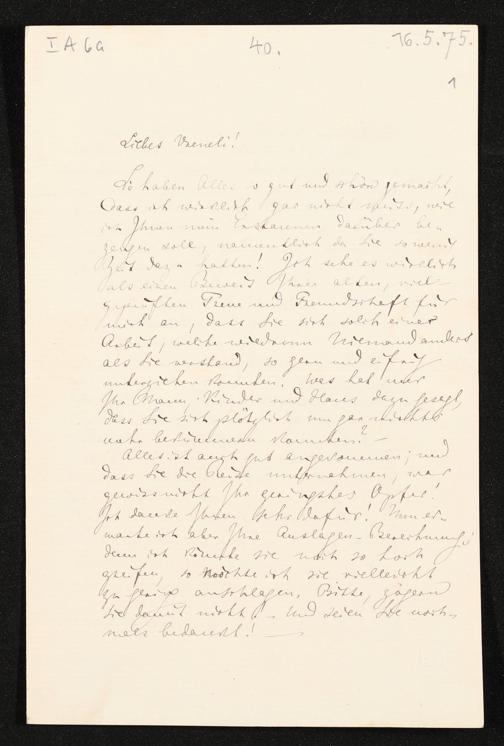 I A 6a 40. 16.5.75.
1
Liebes Vreneli!
Sie haben Alles so gut und schön gemacht,
dass ich wirklich gar nicht weiss, wie
ich Ihnen mein Erstaunen darüber be-
zeugen soll, namentlich da Sie so wenig
Zeit dazu hatten! Ich sehe es wirklich
als einen Beweis Ihrer alten, viel-
geprüften Treue und Freundschaft für
mich an, dass Sie sich solch einer
Arbeit, welche wiederum Niemand anders
als Sie verstand, so gern und eifrig
unterziehen konnten. Was hat nur
Ihr Mann, Kinder und Haus dazu gesagt,
dass Sie sich plötzlich um gar nichts
mehr bekümmern konnten? —
Alles ist auch gut angekommen; und
dass Sie die Reise unternehmen, war
gewiss nicht Ihr geringstes Opfer!
Ich danke Ihnen sehr dafür! Nun er-
warte ich aber Ihre Auslagen-Berechnung;
denn ich könnte sie noch so hoch
greifen, so möchte ich sie vielleicht
zu gering anschlagen. Bitte, zögern
Sie damit nicht! — Und seien Sie noch-
mals bedankt! —